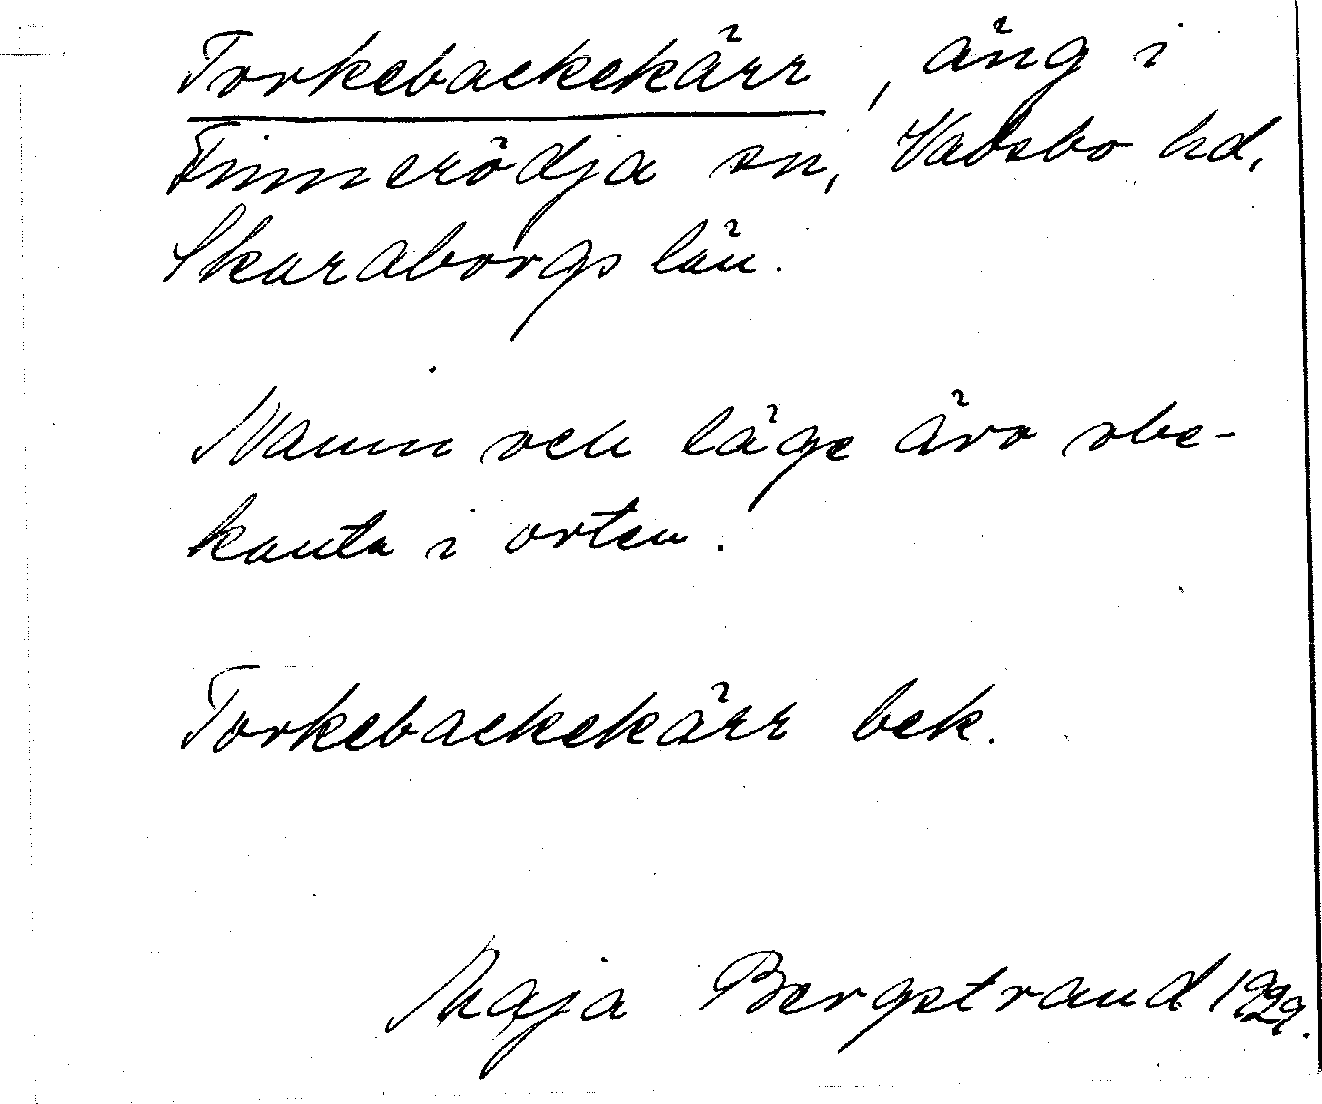 Torkebackekärr, äng i
Finnerödja sn, Vadsbo hd,
Skaraborgs län.
Namn och läge äro obe-
kanta i orten.
Torkebackekärr bek.
Maja Bergstrand 1929.